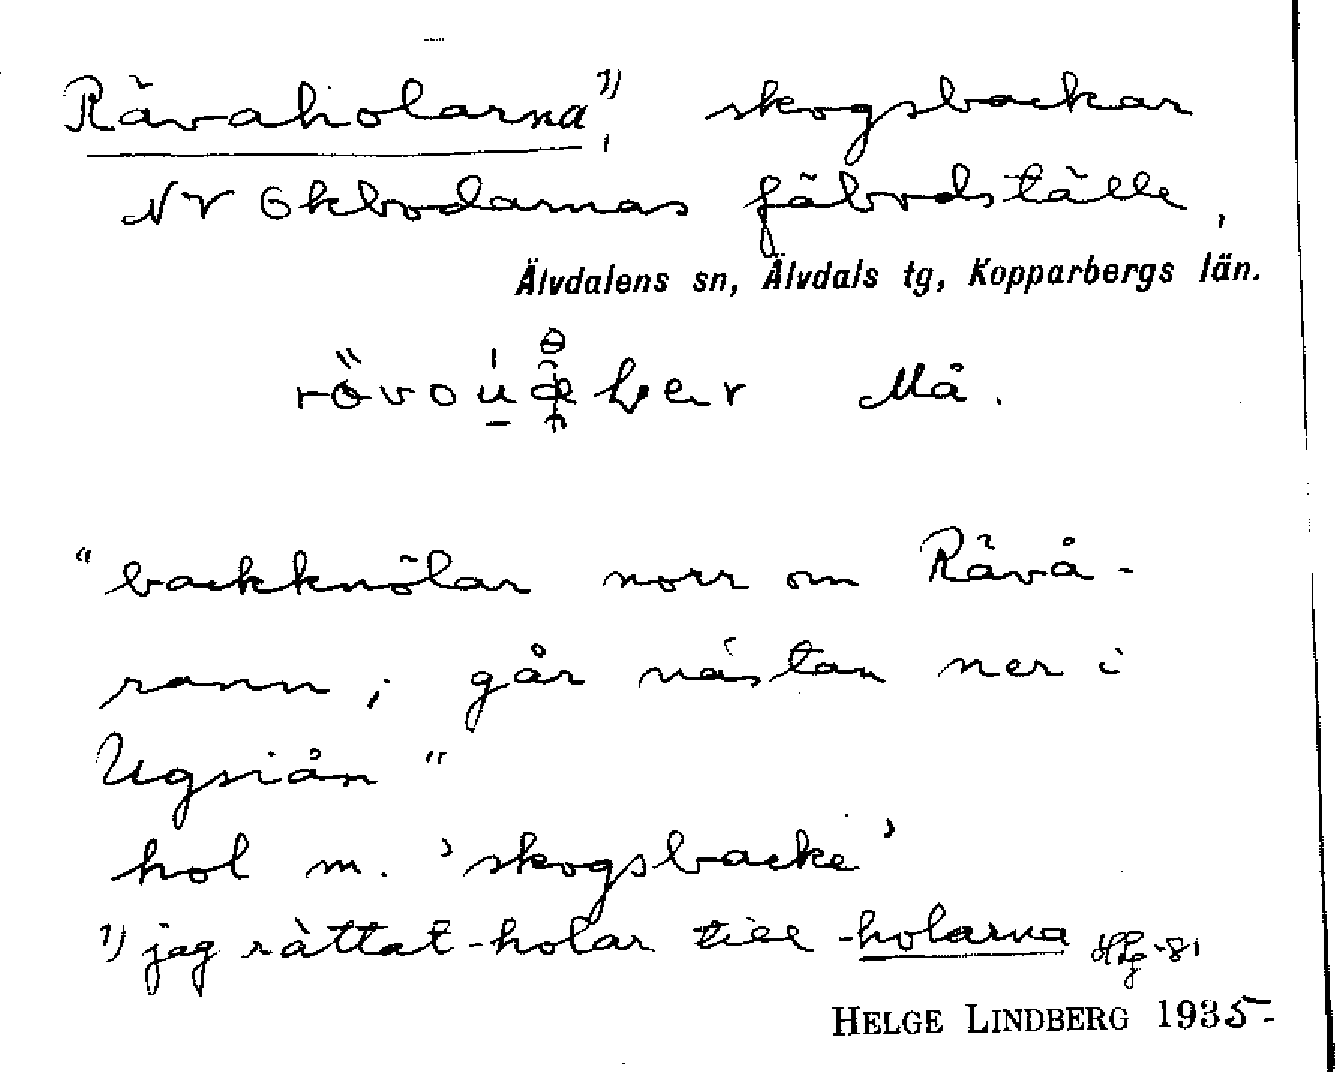 Rävaholarna¹⁾, skogsbackar
NV Okbodarnas fäbodställe,
Älvdalens sn, Älvdals tg, Kopparbergs län.
Må.
"backknölar norr om Rävå-
rann; går nästan ner i
Ugsiån"
hol m. 'skogsbacke'
¹⁾ jag rättat -holar till -holarna HLg -81
HELGE LINDBERG 1935-